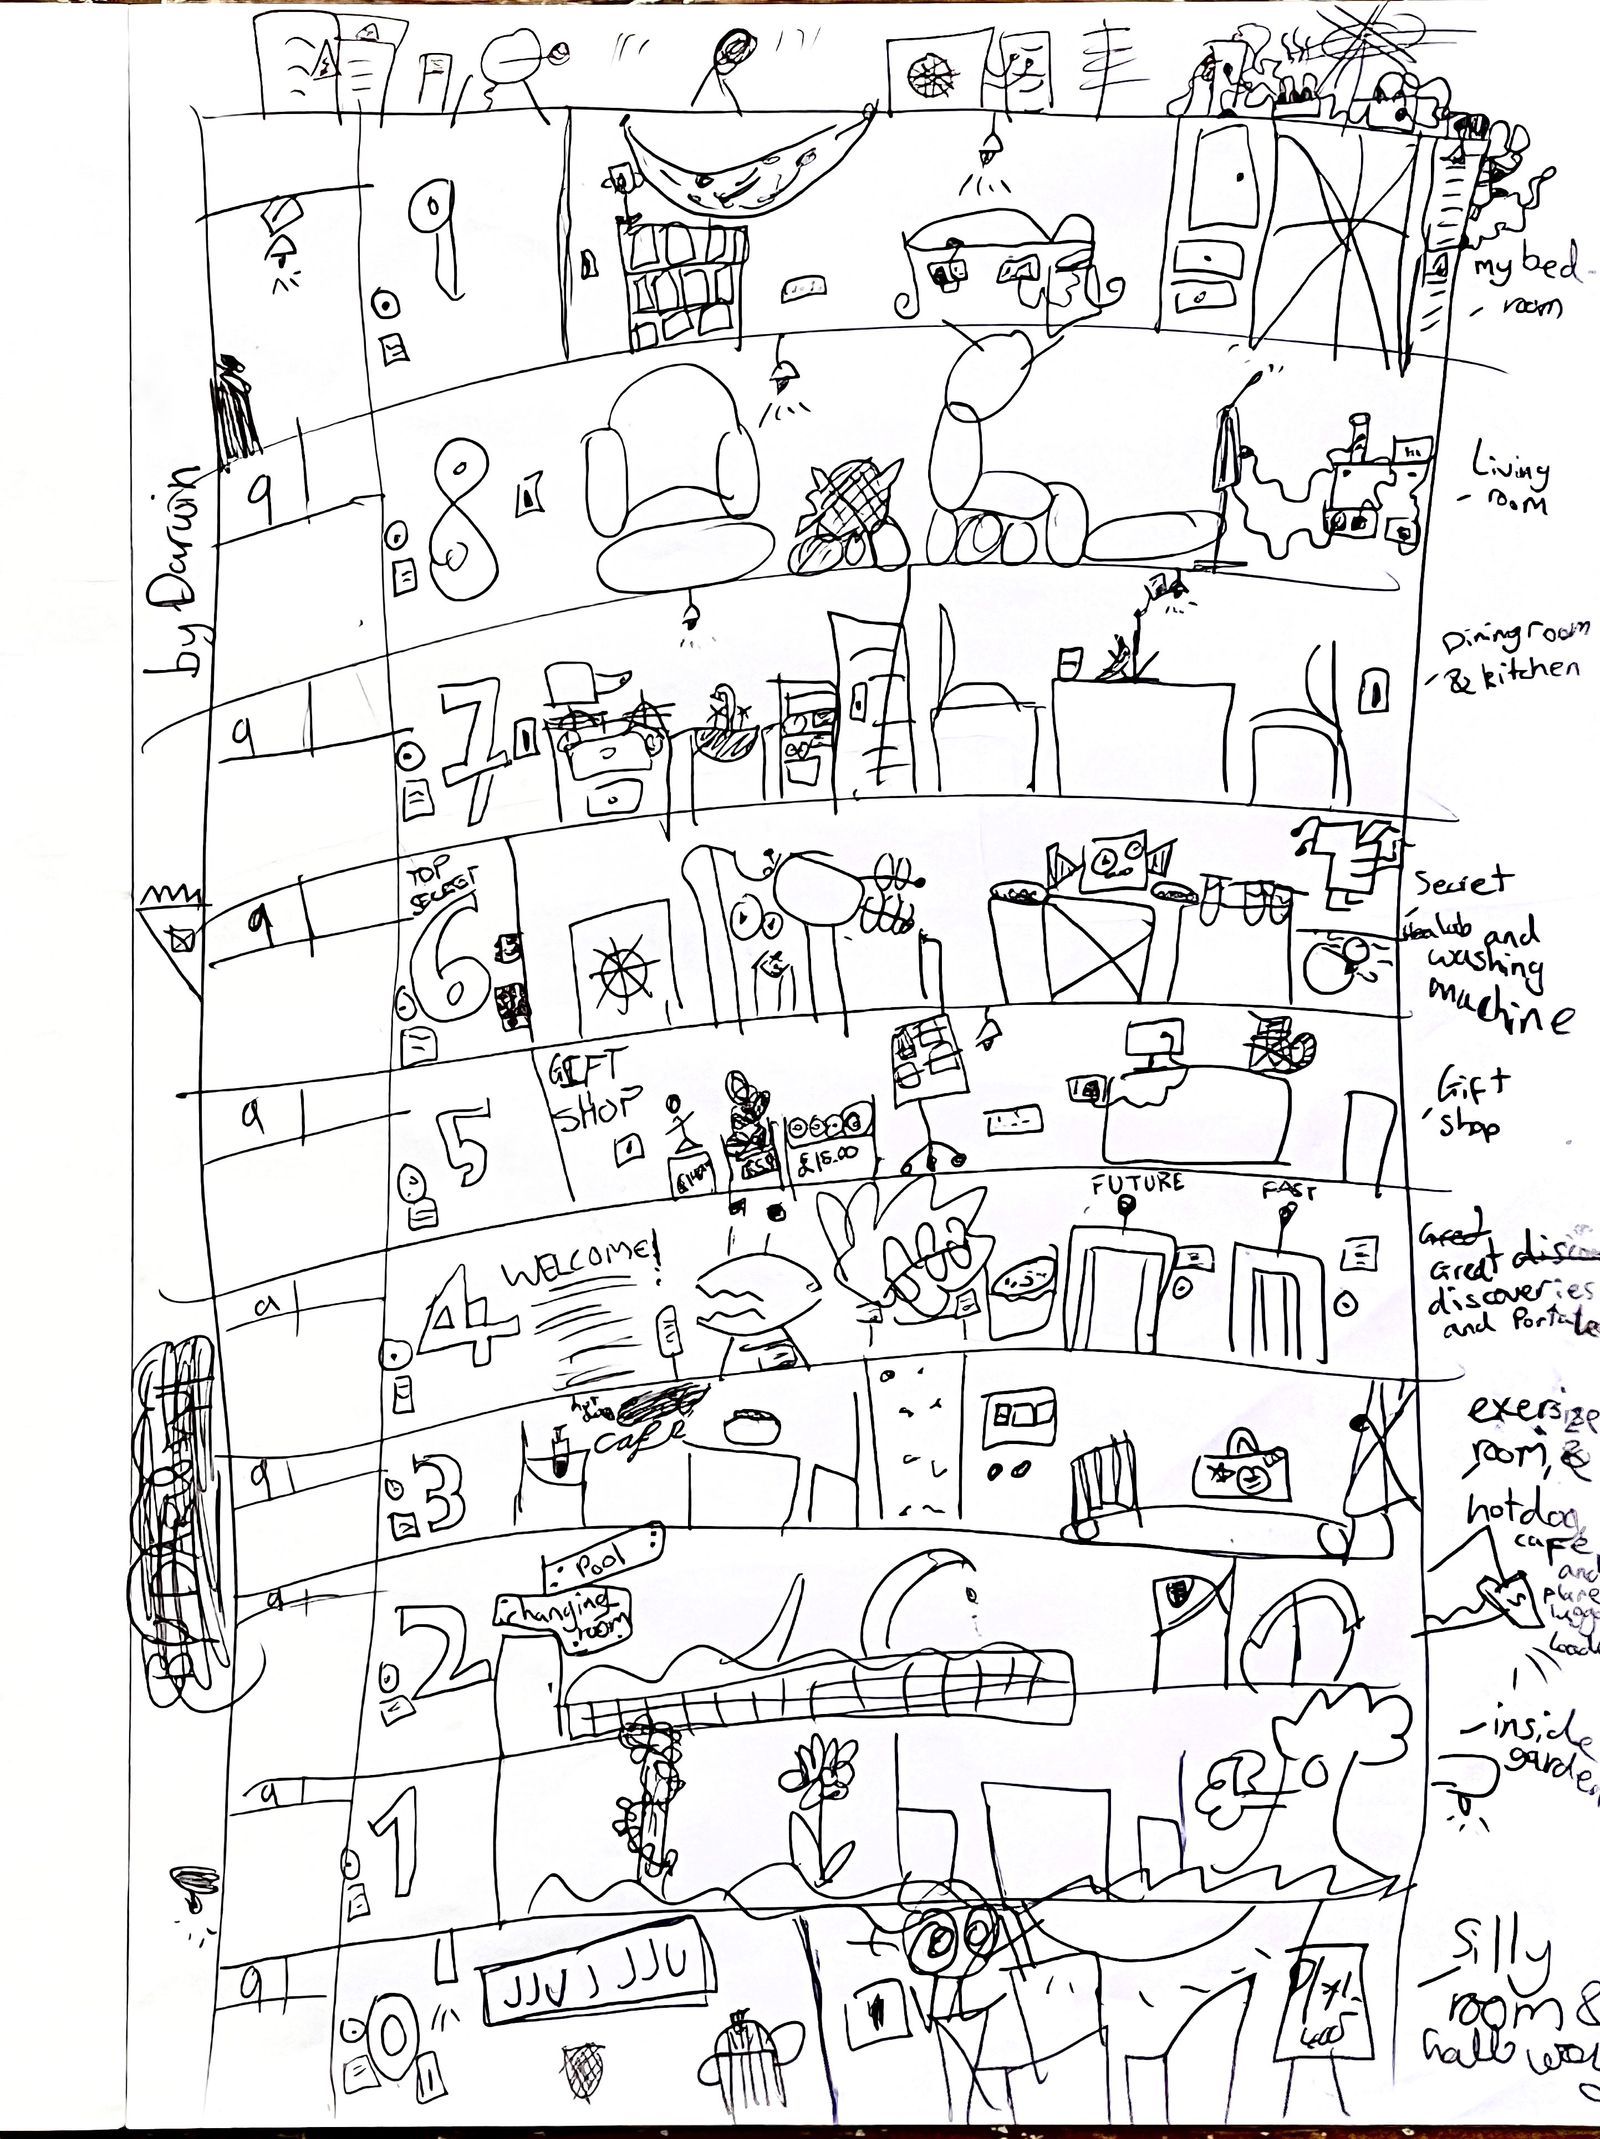 9
my bed-
room
by Darwin
9
8
Living
room
9
7
Dining room
& kitchen
TOP
SECRET
9
6
Secret
and
washing
machine
9
5
GIFT
SHOP
£18.00
Gift
shop
9
4
WELCOME!
FUTURE
PAST
Great
Great
discoveries
and
9
3
cafe
exersize
room, &
hotdog
cafe
and
plane
9
2
Pool
changing
room
9
1
inside
garden
9
0
JJUJJJU
Silly
room &
hallway